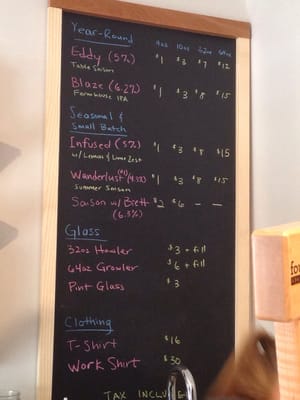 Year-Round 4oz 10oz 32oz 64oz
Eddy (5%) $1 $3 $7 $12
Table Saison
Blaze (6.2%) $1 $3 $8 $15
Farmhouse IPA
Seasonal &
Small Batch
Infused (5%) $1 $3 $8 $15
w/ Lemon & Lime Zest
Wanderlust $1 $3 $8 $15
Summer Saison
Saison w/ Brett $2 $6 — —
(6.5%)
Glass
32oz Howler $3 + fill
64oz Growler $6 + fill
Pint Glass $3
Clothing
T-Shirt $16
Work Shirt $30
TAX